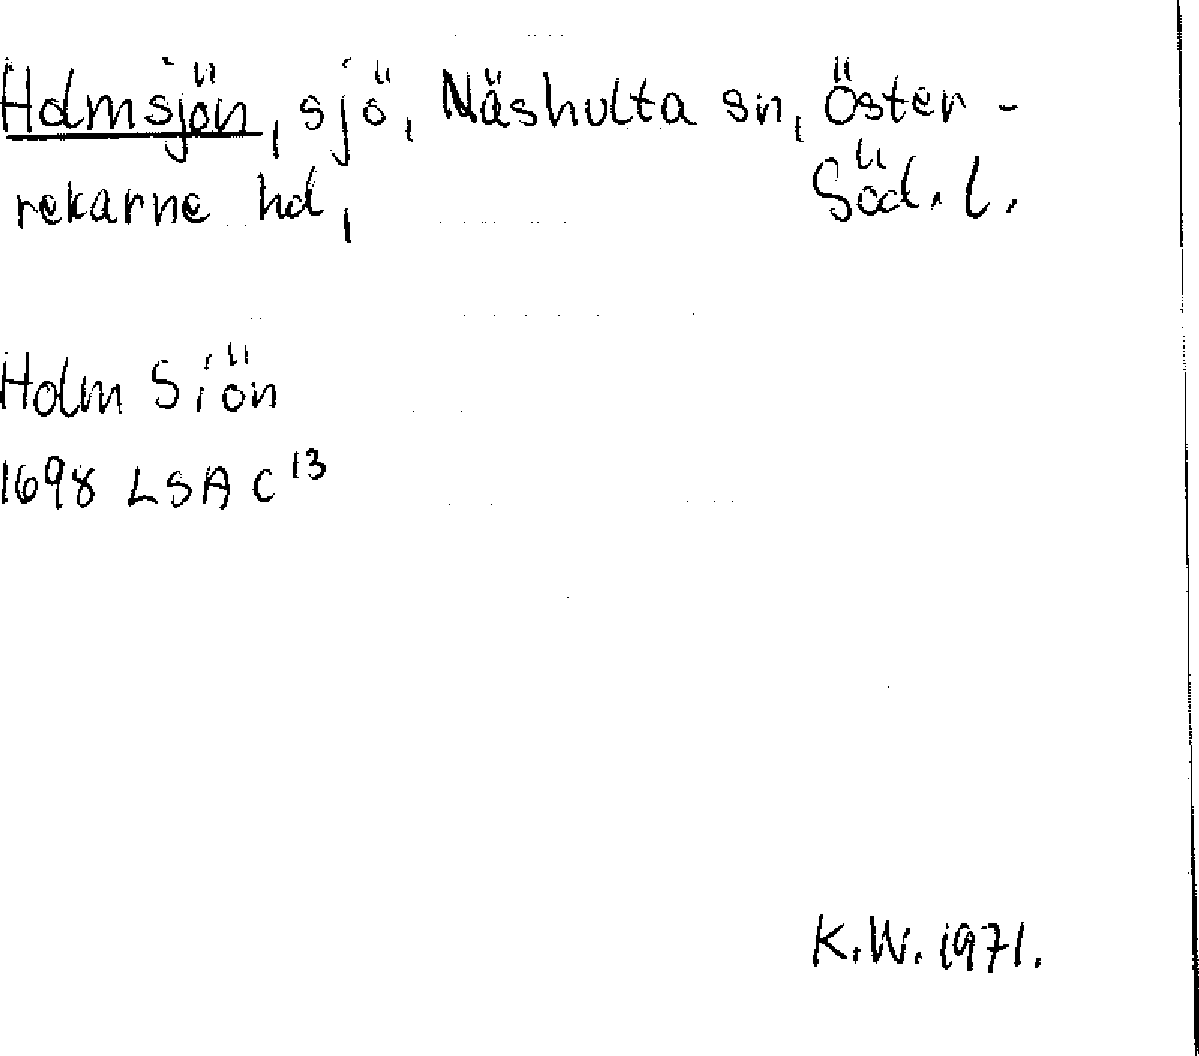 Holmsjön, sjö, Näshulta sn, Öster-
rekarne hd, Söd. l.
Holm Siön
1698 LSA C¹³
K.W. 1971.